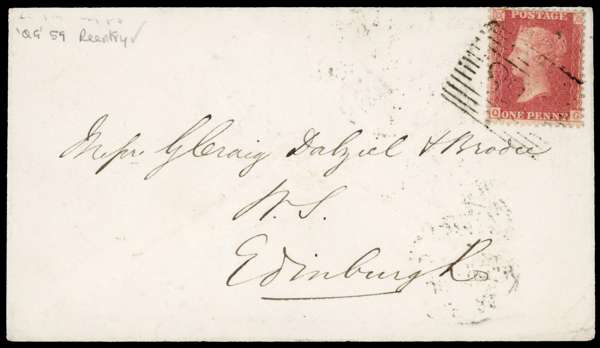 'QG' 59 Reentry ✓
POSTAGE
ONE PENNY
Q G
Messrs G Craig Dalziel & Brodie
W.S.
Edinburgh